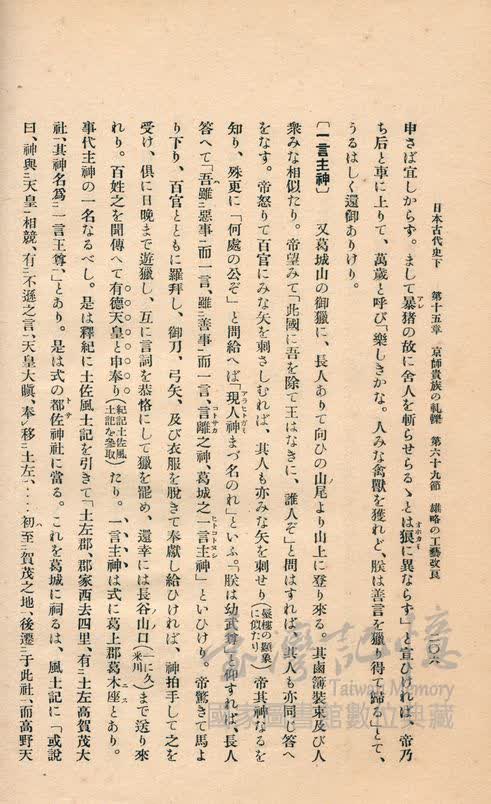 日本古代史下　第十五章　京師貴族の軋轢　第六十九節　雄略の工藝改良　二〇六
申さば宜しからず。まして暴猪の故に舍人を斬らせらるゝとは狼に異ならす」と宣ひければ、帝乃
ち后と車に上りて、萬歲と呼び「樂しきかな。人みな禽獸を獲れど、朕は善言を獵り得て歸る」とて、
うるはしく還御ありけり。
〔一言主神〕　又葛城山の御獵に、長人ありて向ひの山尾より山上に登り來る　其鹵簿裝束及び人
衆みな相似たり。帝望みて「此國に吾を除て王はなきに、誰人ぞ」と問はすれば、其人も亦同じ答へ
をなす。帝怒りて百官にみな矢を刺さしむれば、其人も亦みな矢を刺せり（蜃樓の顯象に似たり）　帝其神なるを
知り、殊更に「何處の公ぞ」と問給へば「現人神まづ名のれ」といふ。「朕は幼武尊」と仰すれば、長人
答へて「吾雖惡事而一言、雖善事而一言、言離之神、葛城之一言主神」といひけり。帝驚きて馬よ
り下り、百官とともに羅拜し、御刀、弓矢、及び衣服を脫きて奉獻し給ひければ、神拍手して之を
受け、俱に日晚まで遊獵し、互に言詞を恭恪にして獵を罷め、還幸には長谷山口（一に久米川）まで送り來
れり。百姓之を聞傳へて有德天皇と申奉り（紀記土佐風土記を參取）たり。一言主神は式に葛上郡葛木座とあり。
事代主神の一名なるべし。是は釋紀に土佐風土記を引きて「土左郡、郡家西去四里、有土左高賀茂大
社、其神名爲一言主尊、」とあり。是は式の都佐神社に當る。これを葛城に祠るは、風土記に「或說
曰、神與天皇相競、有不遜之言、天皇大瞋、奉移土左、‥‥初至賀茂之地、後遷于此社、而高野天
臺灣記憶
Taiwan Memory
國家圖書館數位典藏